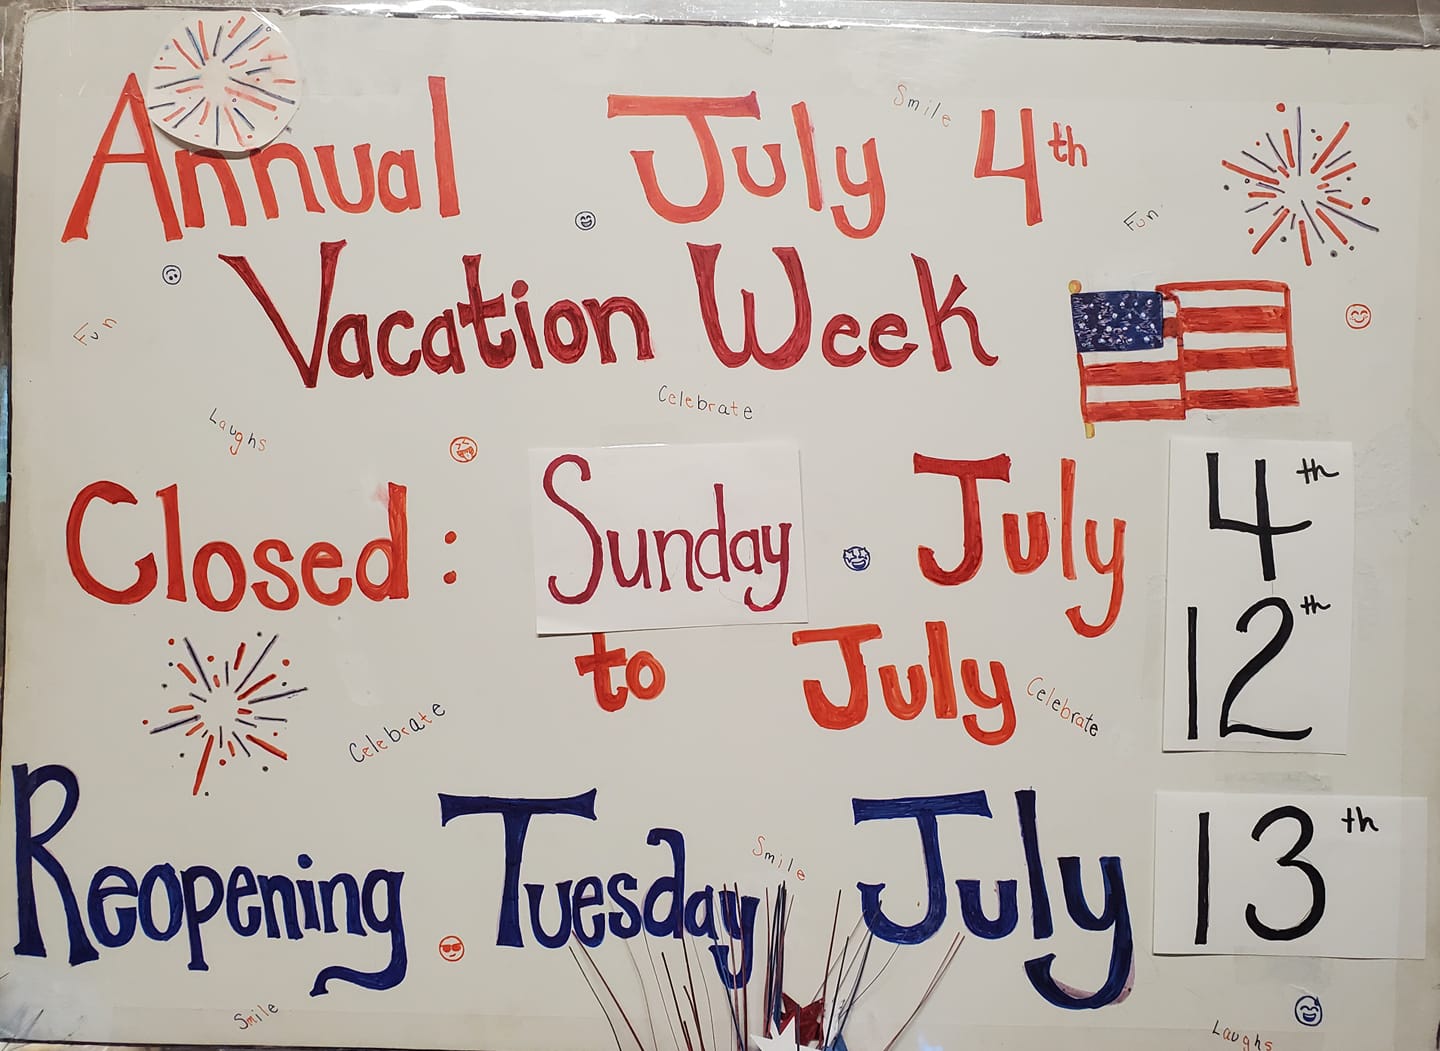 Annual July 4th
Smile
Fun
Vacation Week
Fun
Celebrate
Laughs
Closed: Sunday July 4th
to July 12th
Celebrate
Celebrate
Reopening Tuesday July 13th
Smile
Smile
Laughs